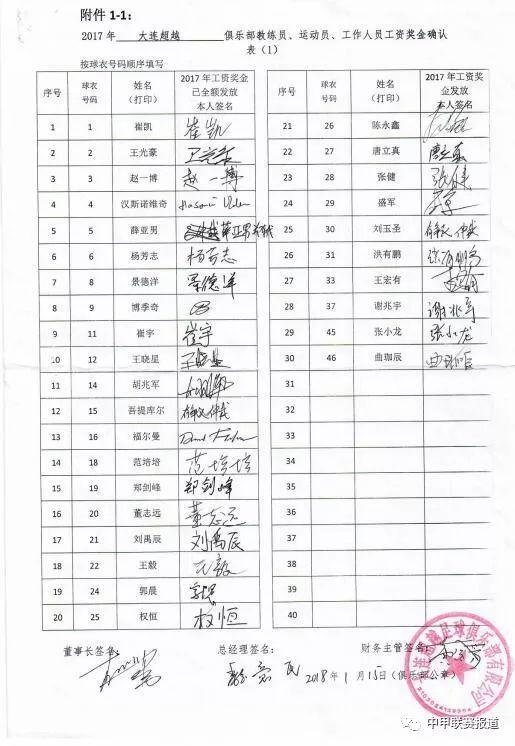 附件 1-1：
2017 年 大连超越 俱乐部教练员、运动员、工作人员工资奖金确认
表（1）
按球衣号码顺序填写
序号 球衣号码 姓名（打印） 2017 年工资奖金已全额发放本人签名
1 1 崔凯 崔凯
2 2 王光豪
3 3 赵一博 赵一博
4 4 汉斯诺维奇
5 5 薛亚男
6 6 杨芳志 杨芳志
7 8 景德洋 景德洋
8 9 博季奇
9 11 崔宇 崔宇
10 12 王晓星 王晓星
11 14 胡兆军
12 15 吾提库尔
13 16 福尔曼
14 18 范培培 范培培
15 19 郑剑峰 郑剑峰
16 20 董志远 董志远
17 21 刘禹辰 刘禹辰
18 22 王毅 王毅
19 24 郭晨
20 25 权恒 权恒
序号 球衣号码 姓名（打印） 2017 年工资奖金发放本人签名
21 26 陈永鑫
22 27 唐立真 唐立真
23 28 张健 张健
24 29 盛军
25 30 刘玉圣
26 31 洪有鹏
27 33 王宏有
28 37 谢兆宇 谢兆宇
29 45 张小龙 张小龙
30 46 曲珈辰 曲珈辰
31
32
33
34
35
36
37
38
39
40
董事长签名：
总经理签名：
财务主管签名：
2018年1月15日（俱乐部公章）
中甲联赛报道